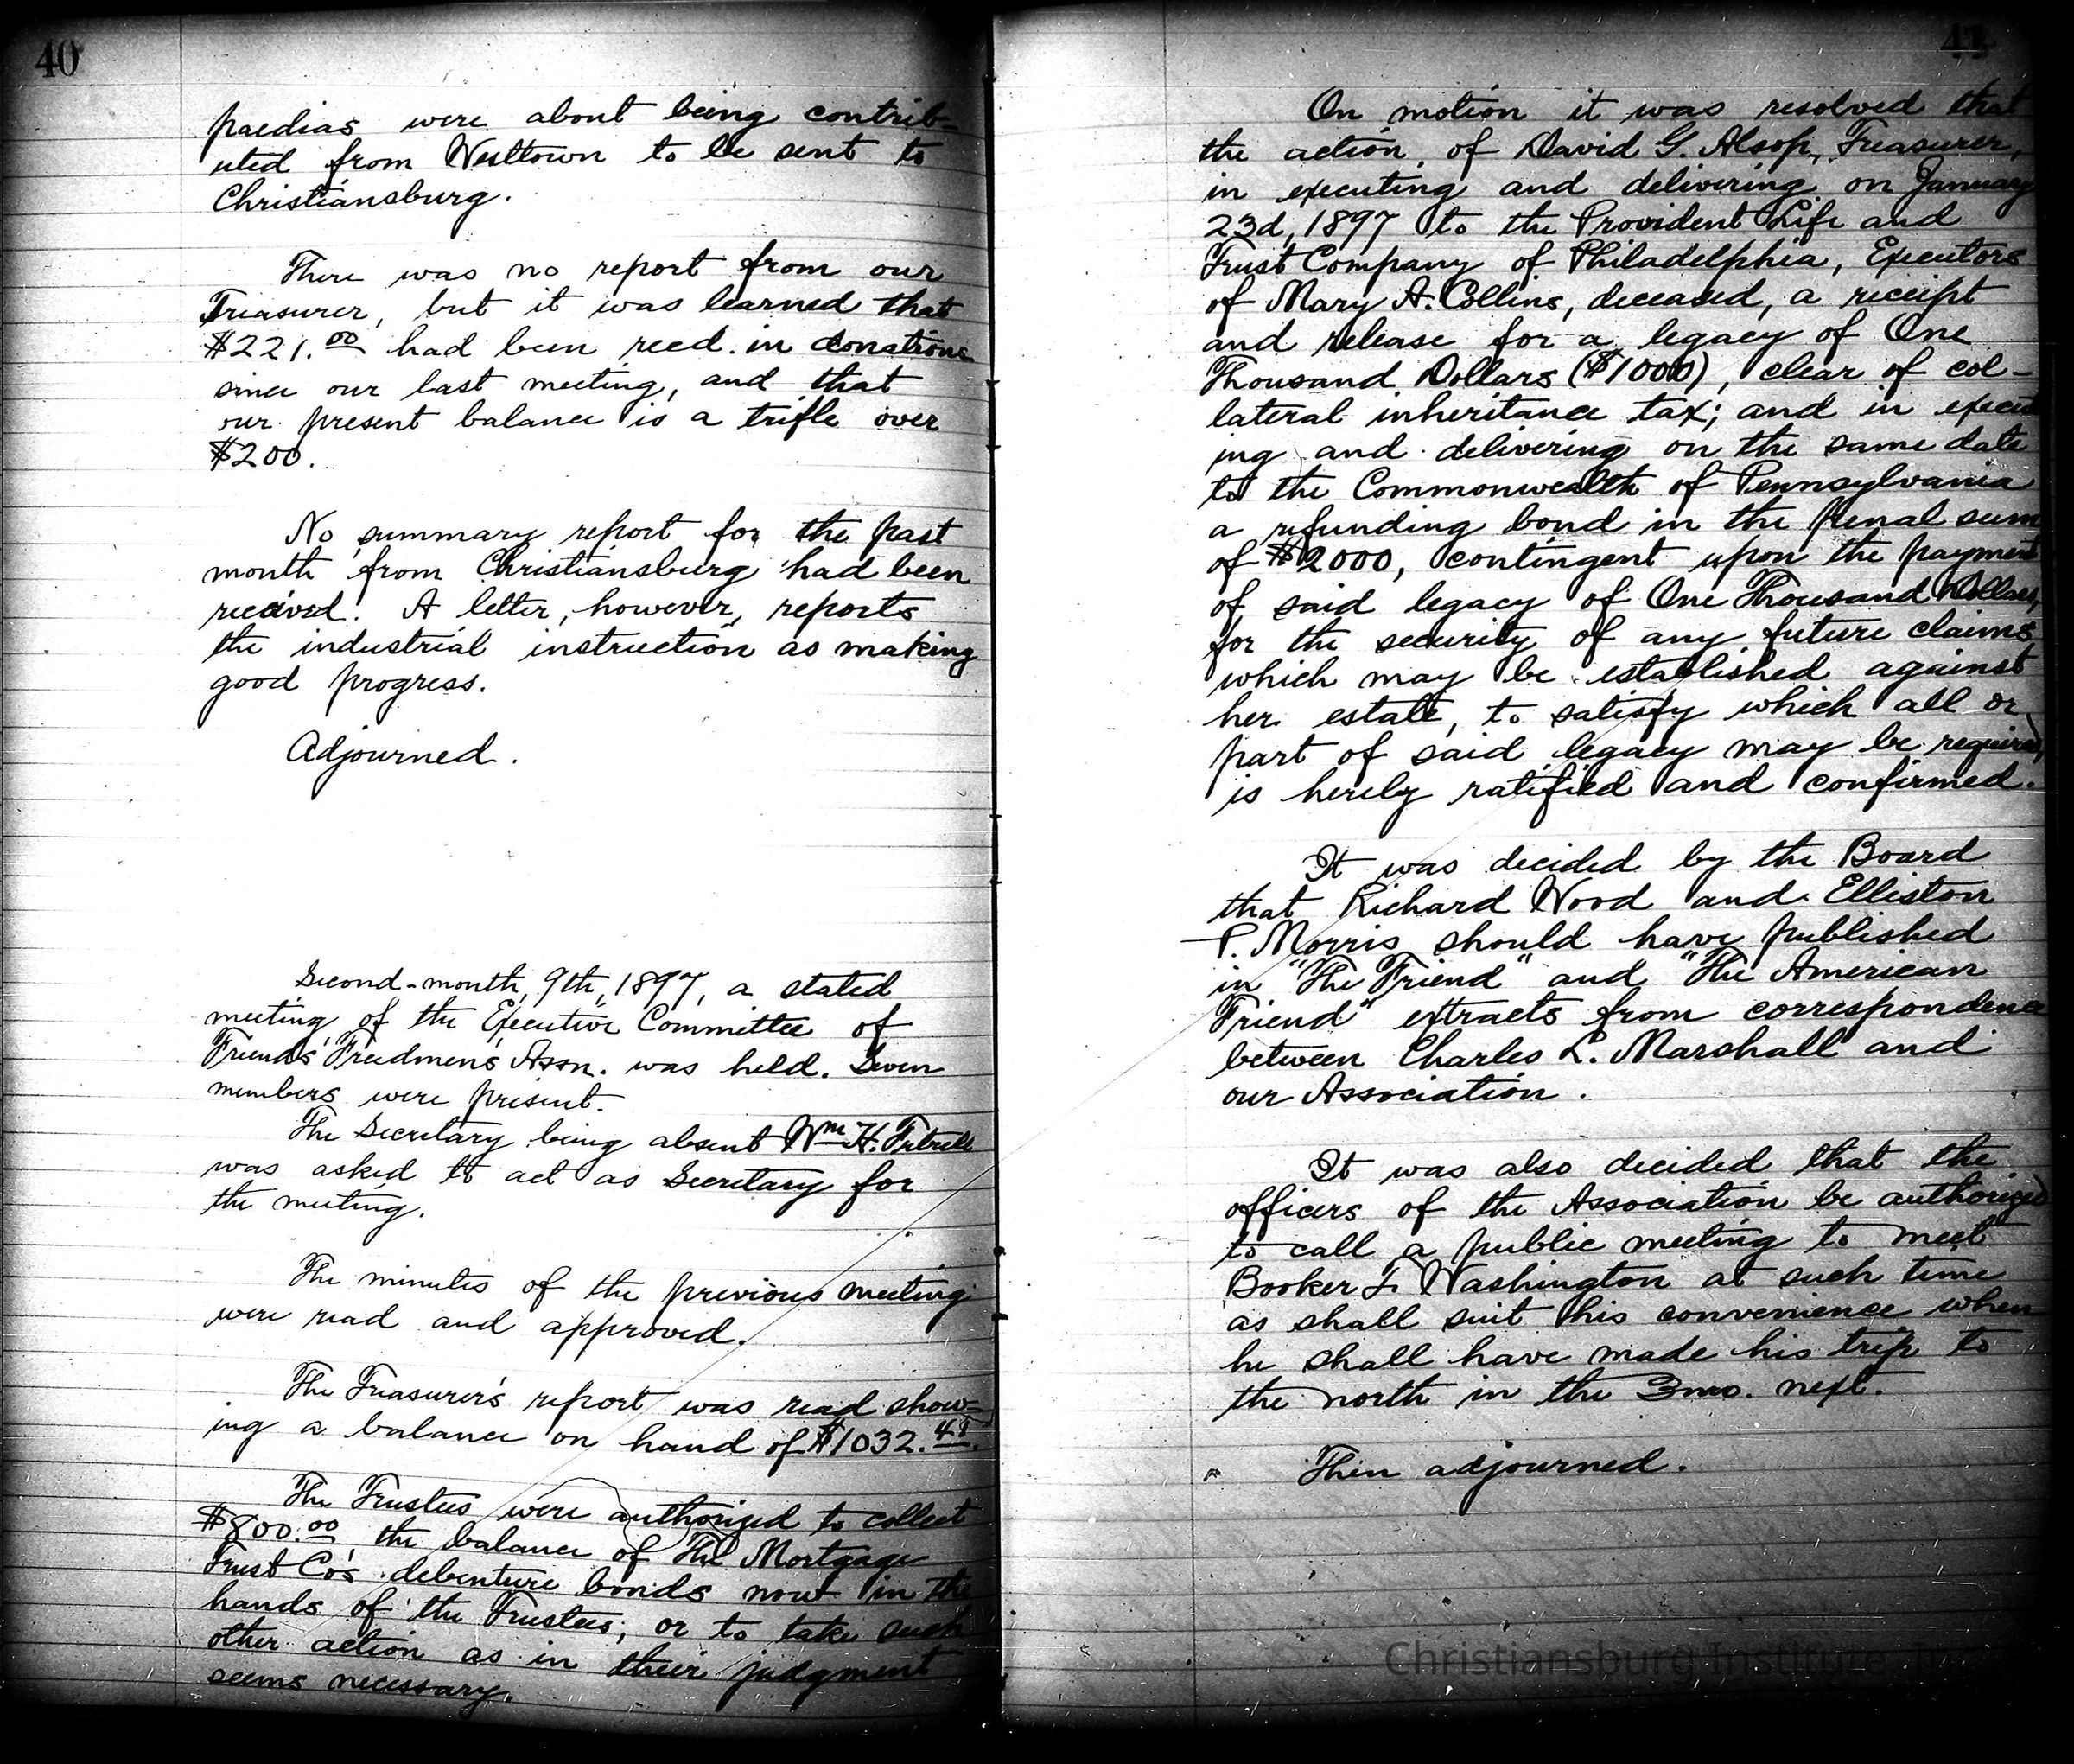 40
paedias were about being contrib-
uted from Westtown to be sent to
Christiansburg.
There was no report from our
Treasurer, but it was learned that
$221.00 had been recd. in donations
since our last meeting, and that
our present balance is a trifle over
$200.
No summary report for the past
month from Christiansburg had been
received. A letter, however, reports
the industrial instruction as making
good progress.
Adjourned.
Second-month, 9th, 1897, a stated
meeting of the Executive Committee of
Friends' Freedmen's Assn. was held. Seven
members were present.
The Secretary being absent Wm H.
was asked to act as Secretary for
the meeting.
The minutes of the previous meeting
were read and approved.
The Treasurer's report was read show-
ing a balance on hand of $1032.
The Trustees were authorized to collect
$800.00, the balance of The Mortgage
Trust Co's. debenture bonds now in the
hands of the Trustees, or to take such
other action as in their judgment
seems necessary.
41
On motion it was resolved that
the action, of David G. Alsop, Treasurer,
in executing and delivering on January
23d, 1897 to the Provident Life and
Trust Company of Philadelphia, Executors
of Mary A. Collins, deceased, a receipt
and release for a legacy of One
Thousand Dollars ($1000), clear of col-
lateral inheritance tax; and in execut
ing and delivering on the same date
to the Commonwealth of Pennsylvania
a refunding bond in the penal sum
of $2000, contingent upon the payment
of said legacy of One Thousand Dollars,
for the security of any future claims
which may be established against
her estate, to satisfy which all or
part of said legacy may be required,
is hereby ratified and confirmed.
It was decided by the Board
that Richard Wood and Elliston
P. Morris should have published
in "The Friend" and "The American
Friend" extracts from correspondence
between Charles L. Marshall and
our Association.
It was also decided that the
officers of the Association be authorized
to call a public meeting to meet
Booker T. Washington at such time
as shall suit his convenience when
he shall have made his trip to
the north in the 3mo. next.
Then adjourned.
Christiansburg Institute,